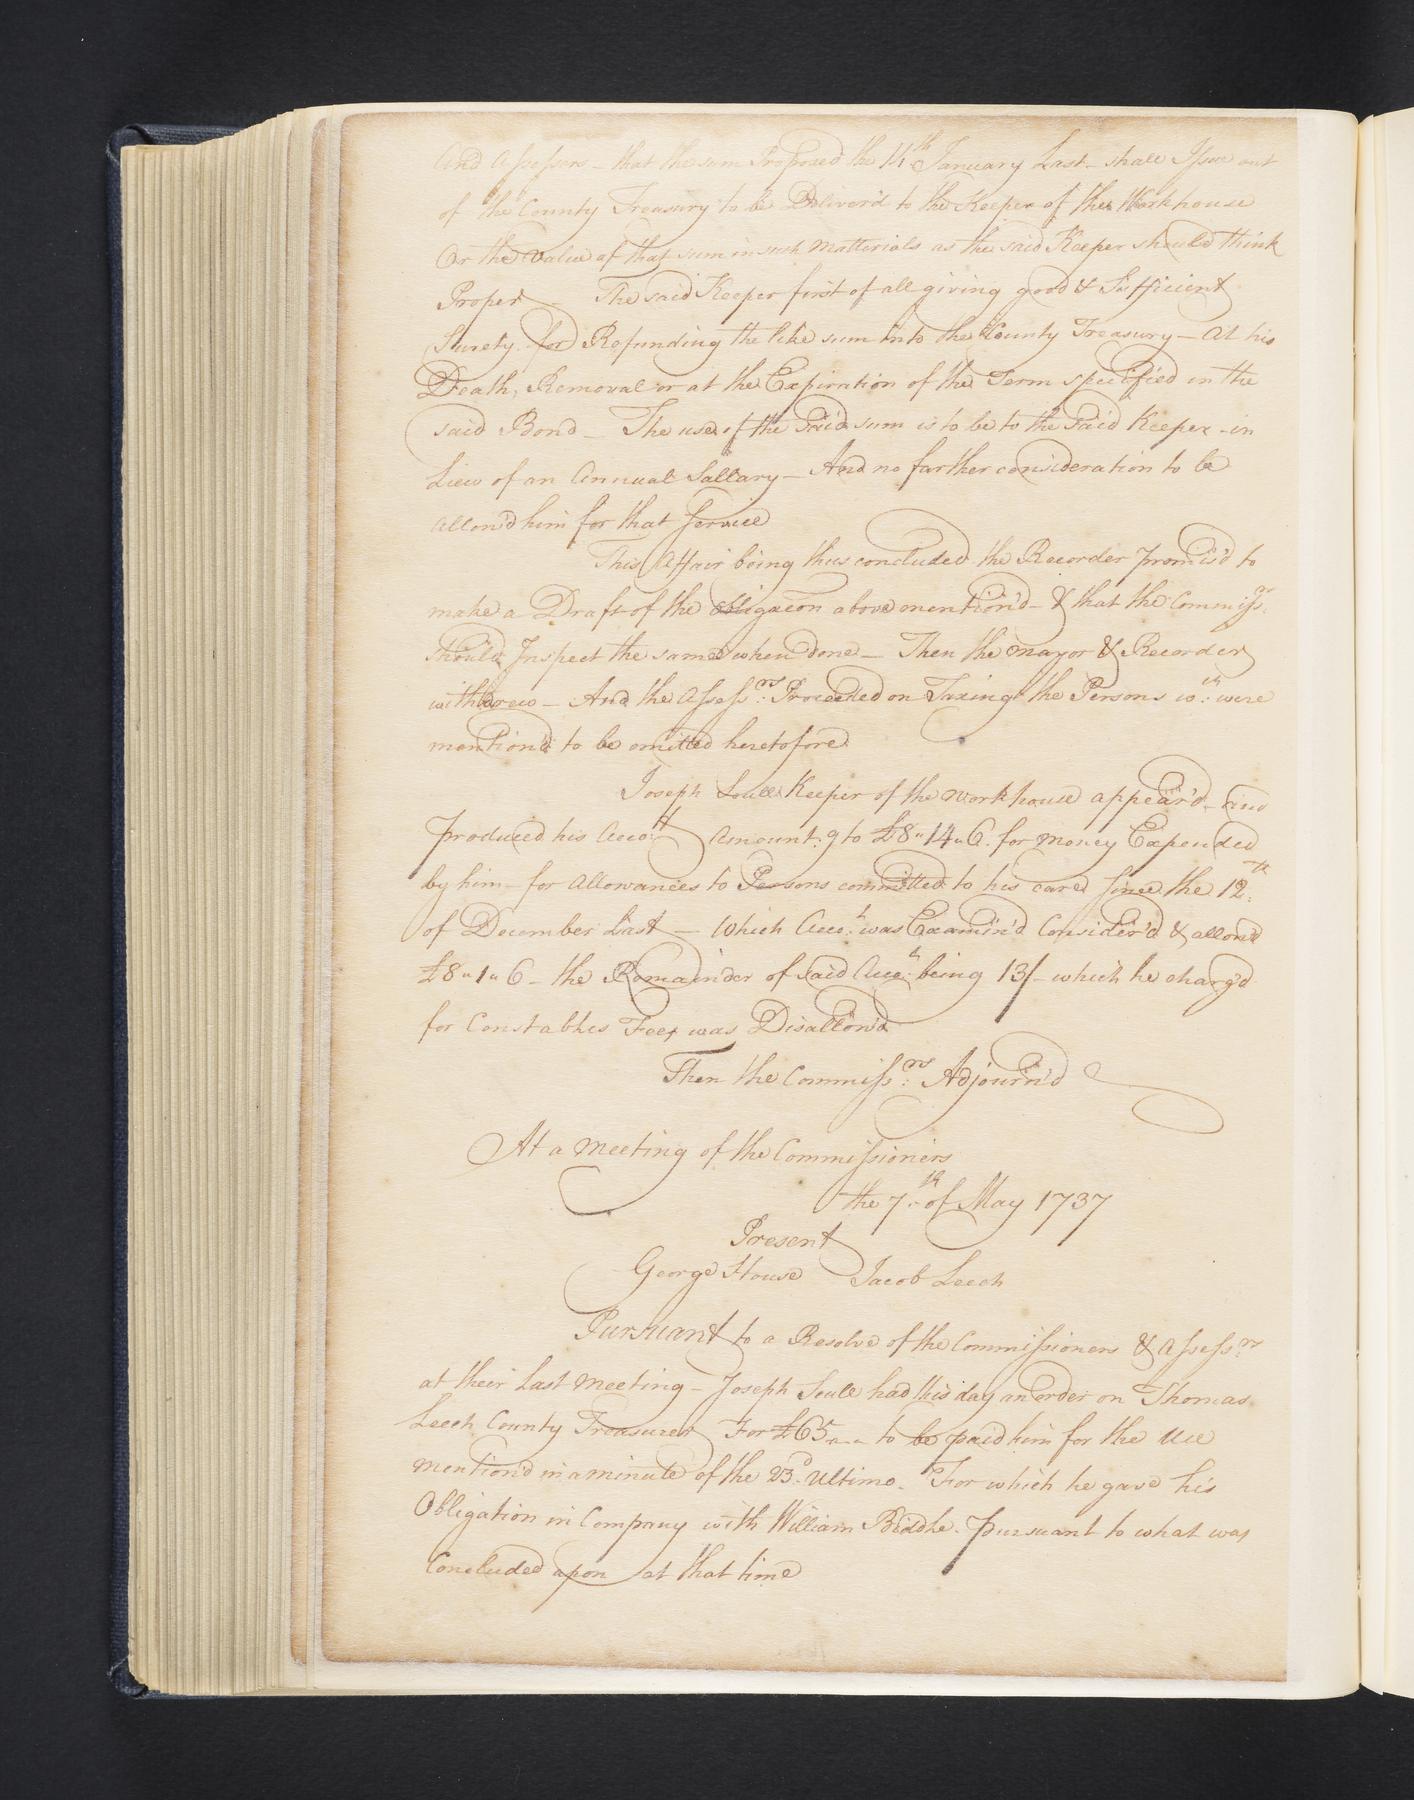 And Assessors – that the sum Proposed the 14th January Last – shall Issue out
of the County Treasury to be Deliver'd to the Keeper of the Workhouse
Or the Value of that sum in such Matterials as the said Keeper should think
Proper – The said Keeper first of all giving good & Sufficient
Surety for Refunding the like sum into the County Treasury – At his
Death, Removal or at the Expiration of the Term specified in the
said Bond – The use of the said sum is to be to the said Keeper – in
Liew of an Annual Sallary – And no farther consideration to be
allow'd him for that Service
This Affair being thus concluded the Recorder promis'd to
make a Draft of the obligacon above mention'd – & that the Commissrs
should Inspect the same when done – Then the Mayor & Recorder
withdrew – And the Assessrs Proceeded on Taxing the Persons wch were
mention'd to be omitted heretofore
Joseph Soull Keeper of the Workhouse appear'd – and
produced his Accot Amountg to £8"14"6 for Money Expended
by him – for Allowances to Persons committed to his care since the 12th
of December Last – Which Accot was Examin'd Consider'd & allow'd
£8"1"6 – the Remainder of said Accot being 13/– which he charg'd
for Constables Fees was Disallow'd
Then the Commissrs Adjourn'd
At a Meeting of the Commissioners
the 7th of May 1737
Present
George House Jacob Leech
Pursuant to a Resolve of the Commissioners & Assessrs
at their Last Meeting – Joseph Soull had this day an order on Thomas
Leech County Treasurer For £65 " – " – to be paid him for the Use
mention'd in a minute of the 23d Ultimo. For which he gave his
Obligation in Company with William Biddle. pursuant to what was
Concluded upon at that time